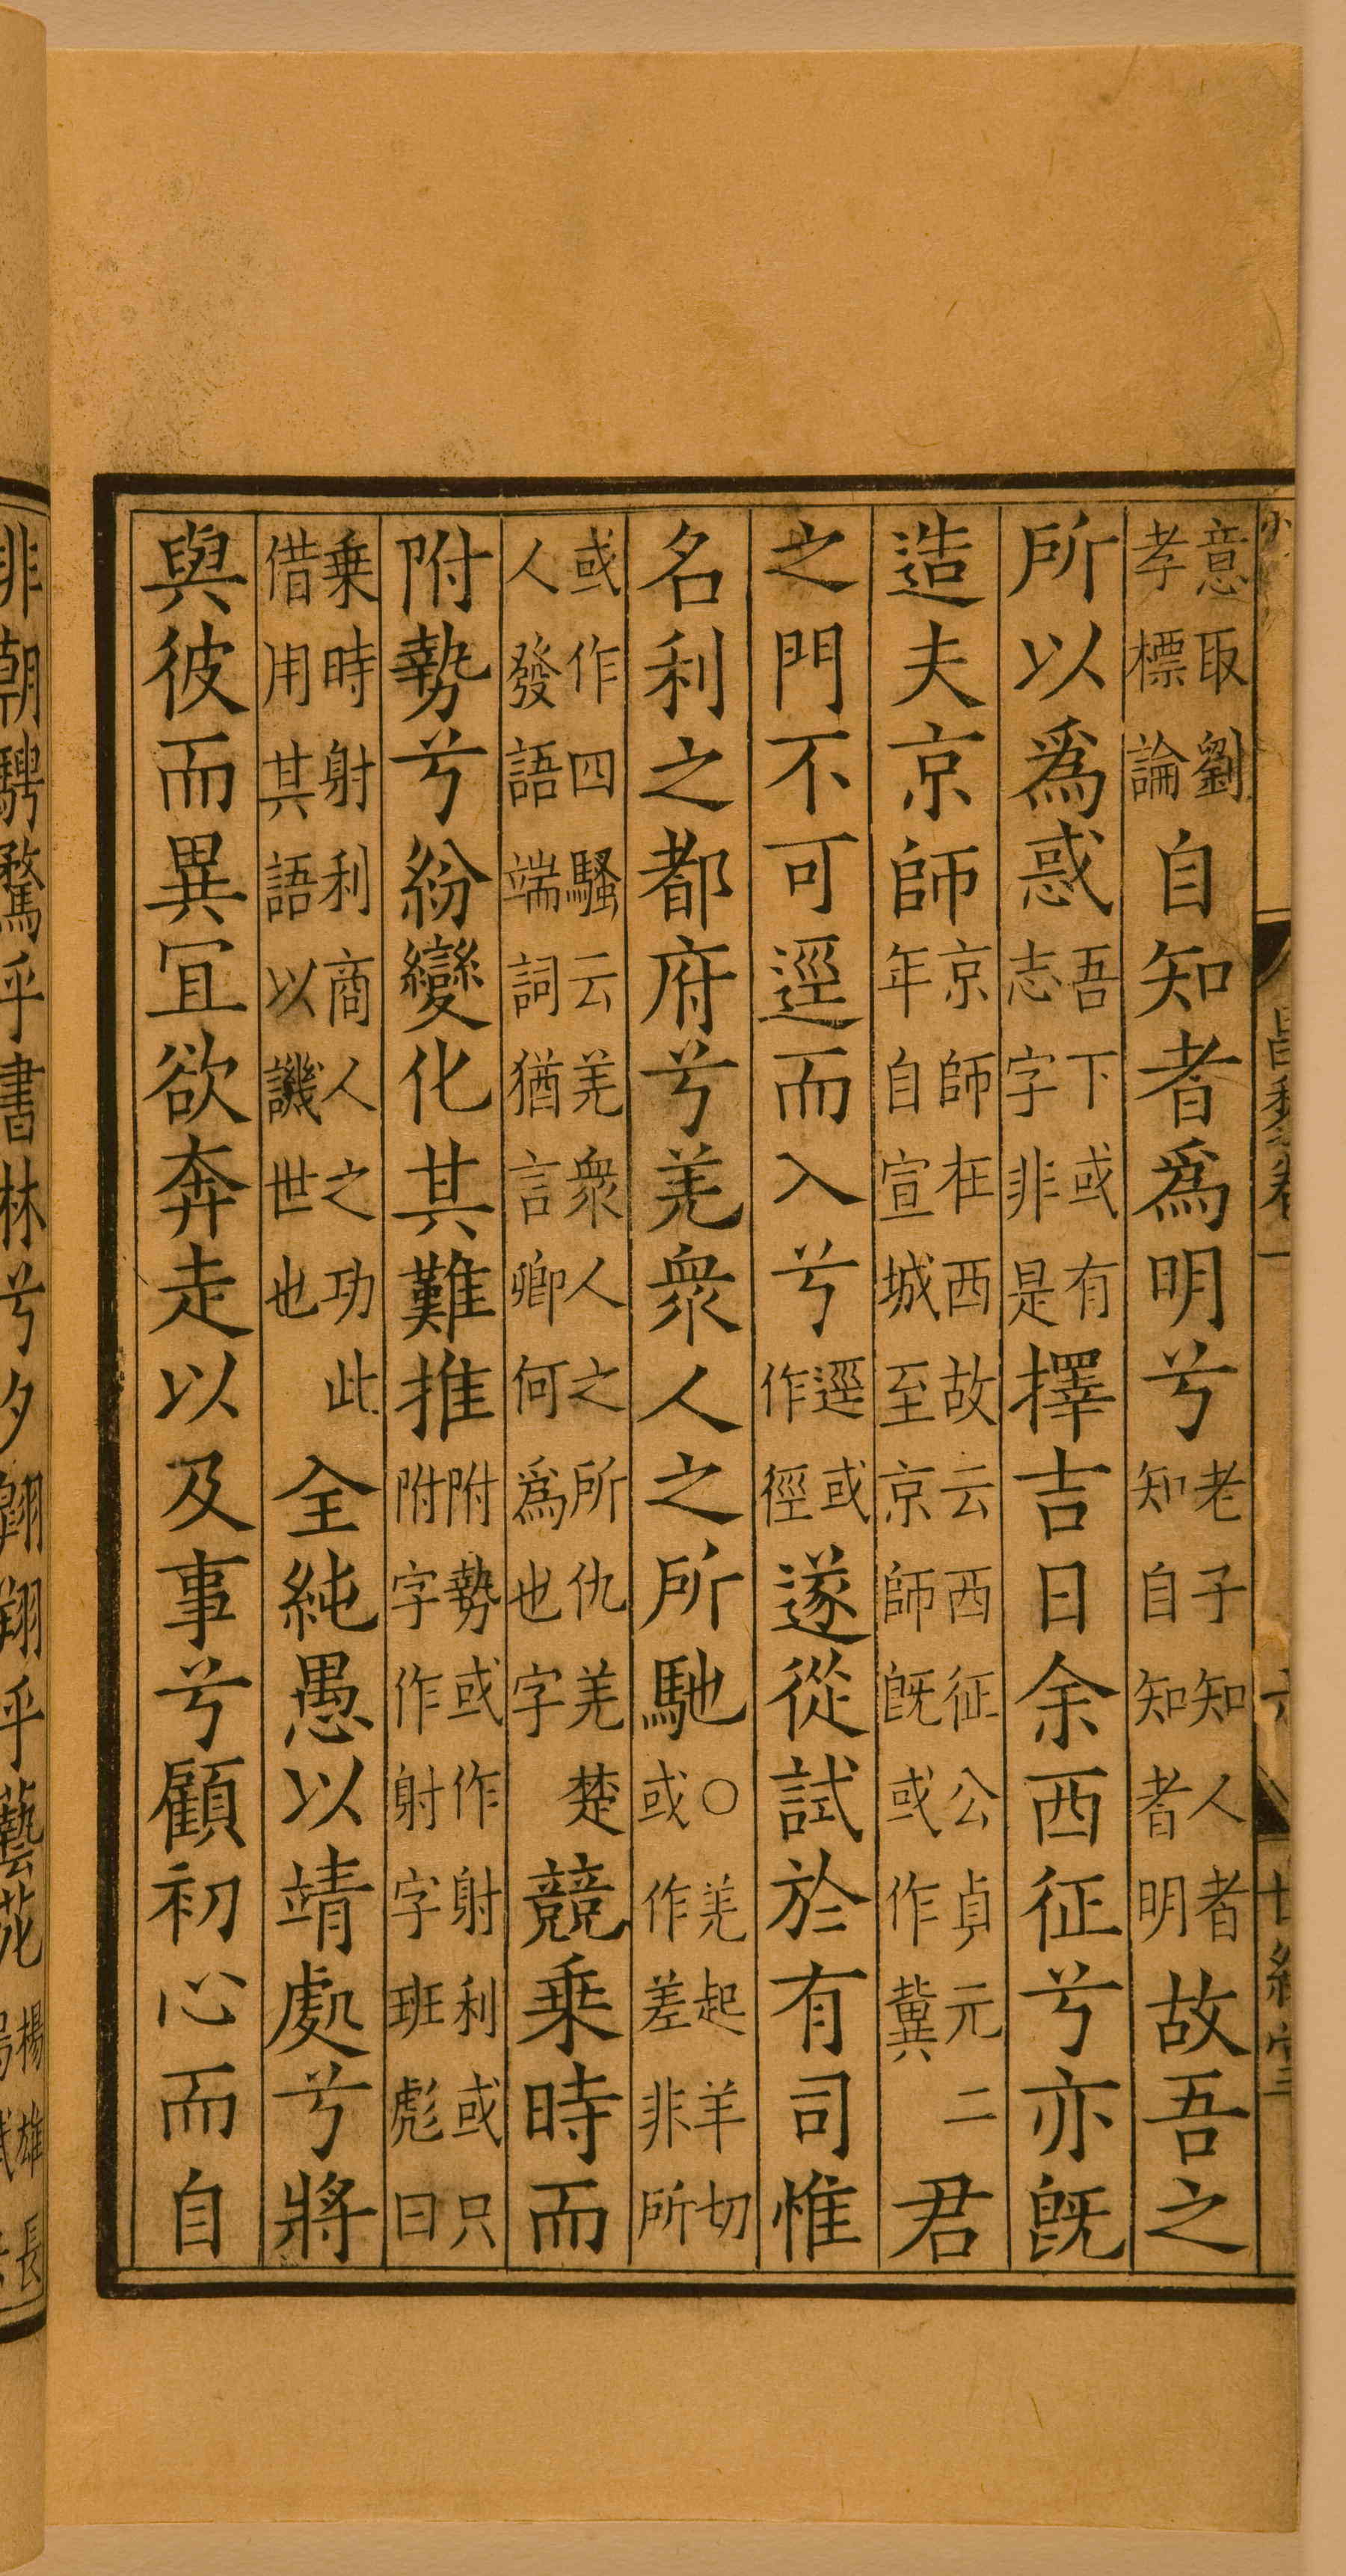 意取劉孝標論自知者爲明兮老子知人者知自知者明故吾之
所以爲惑吾下或有志字非是擇吉日余西征兮亦旣
造夫京師京師在西故云西征公貞元二年自宣城至京師旣或作冀君
之門不可逕而入兮逕或作徑遂從試於有司惟
名利之都府兮羌衆人之所馳○羌起羊切或作差非所
或作四騷云羌衆人之所仇羌楚人發語端詞猶言卿何爲也字競乗時而
附勢兮紛變化其難推附勢或作射利或只附字作射字班彪曰
乗時射利商人之功此借用其語以譏世也全純愚以靖處兮將
與彼而異宜欲奔走以及事兮顧初心而自
非朝騁騖乎書林兮夕翶翔乎藝苑